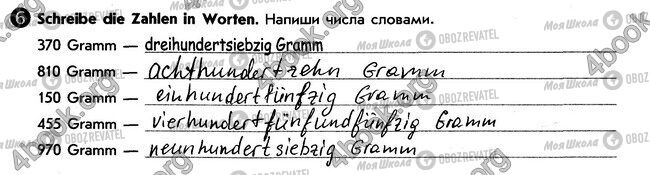 6 Schreibe die Zahlen in Worten. Напиши числа словами.
370 Gramm — dreihundertsiebzig Gramm
810 Gramm — achthundertzehn Gramm
150 Gramm — einhundertfünfzig Gramm
455 Gramm — vierhundertfünfundfünfzig Gramm
970 Gramm — neunhundertsiebzig Gramm
4book.org
Моя Школа
OBOZREVATEL